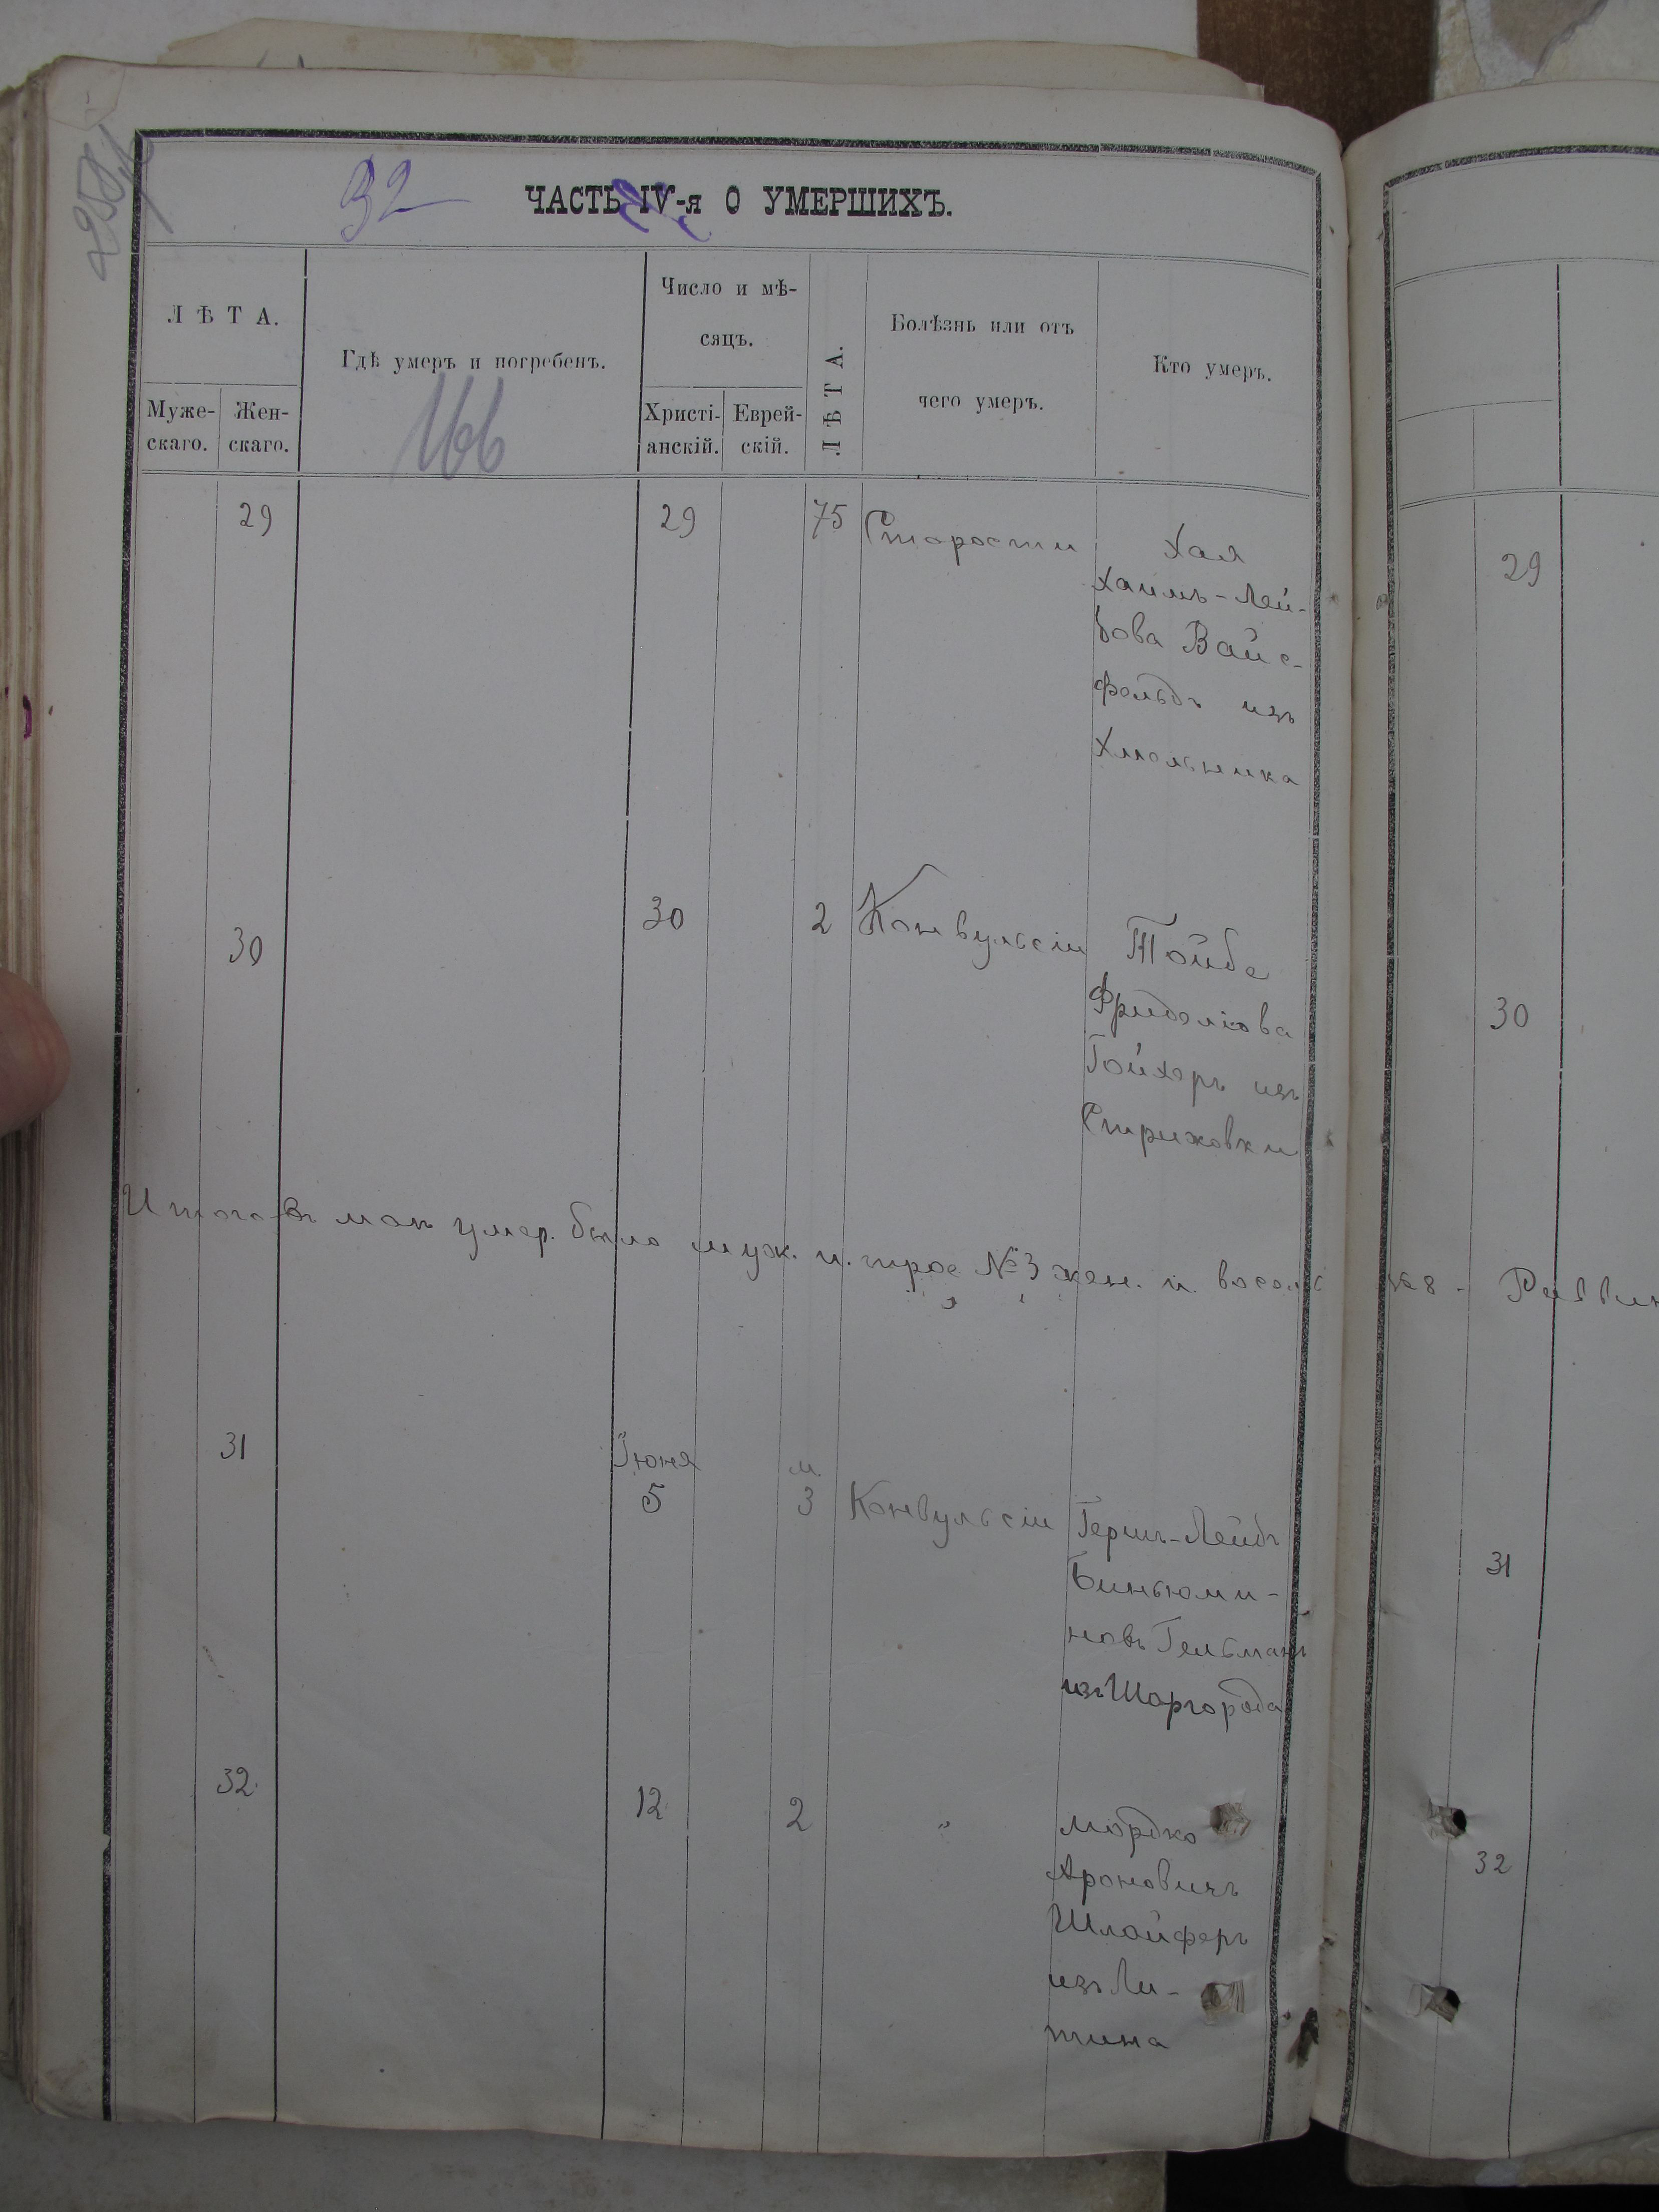 32
ЧАСТЬ IV-я О УМЕРШИХЪ.
ЛѢТА.
Муже-
скаго.
Жен-
скаго.
Гдѣ умеръ и погребенъ.
166
Число и мѣ-
сяцъ.
Христі-
анскій.
Еврей-
скій.
ЛѢТА.
Болѣзнь или отъ
чего умеръ.
Кто умеръ.
29
29
75
Старости
Хая
Хаимъ-Лей-
бова Вайс-
фельдъ изъ
Хмельника
29
30
30
2
Конвульсіи
Тойба
Фриделіова
Гойхеръ изъ
Стрижовки
30
Итого въ маѣ умер. было муж. п. трое №3 жен. п. восемь №8 - Раввин
31
Іюня
5
м.
3
Конвульсіи
Гершъ-Лейбъ
Биньюми-
новъ Гельманъ
изъ Шаргорода
31
32
12
2
"
Мордко
Ароновичъ
Шлойферъ
изъ Ли-
тина
32